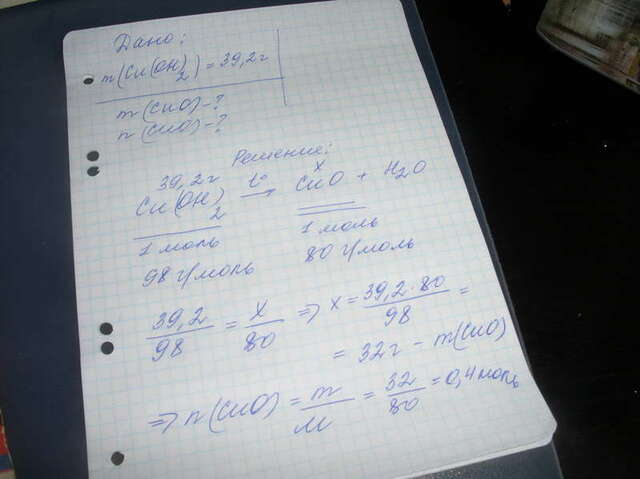 Дано:
m(Cu(OH)2) = 39,2г
m(CuO) - ?
n(CuO) - ?
Решение:
39,2г x
Cu(OH)2 t° → CuO + H2O
1 моль 1 моль
98 г/моль 80 г/моль
39,2/98 = x/80 => x = 39,2·80/98 =
= 32г - m(CuO)
=> n(CuO) = m/M = 32/80 = 0,4 моль